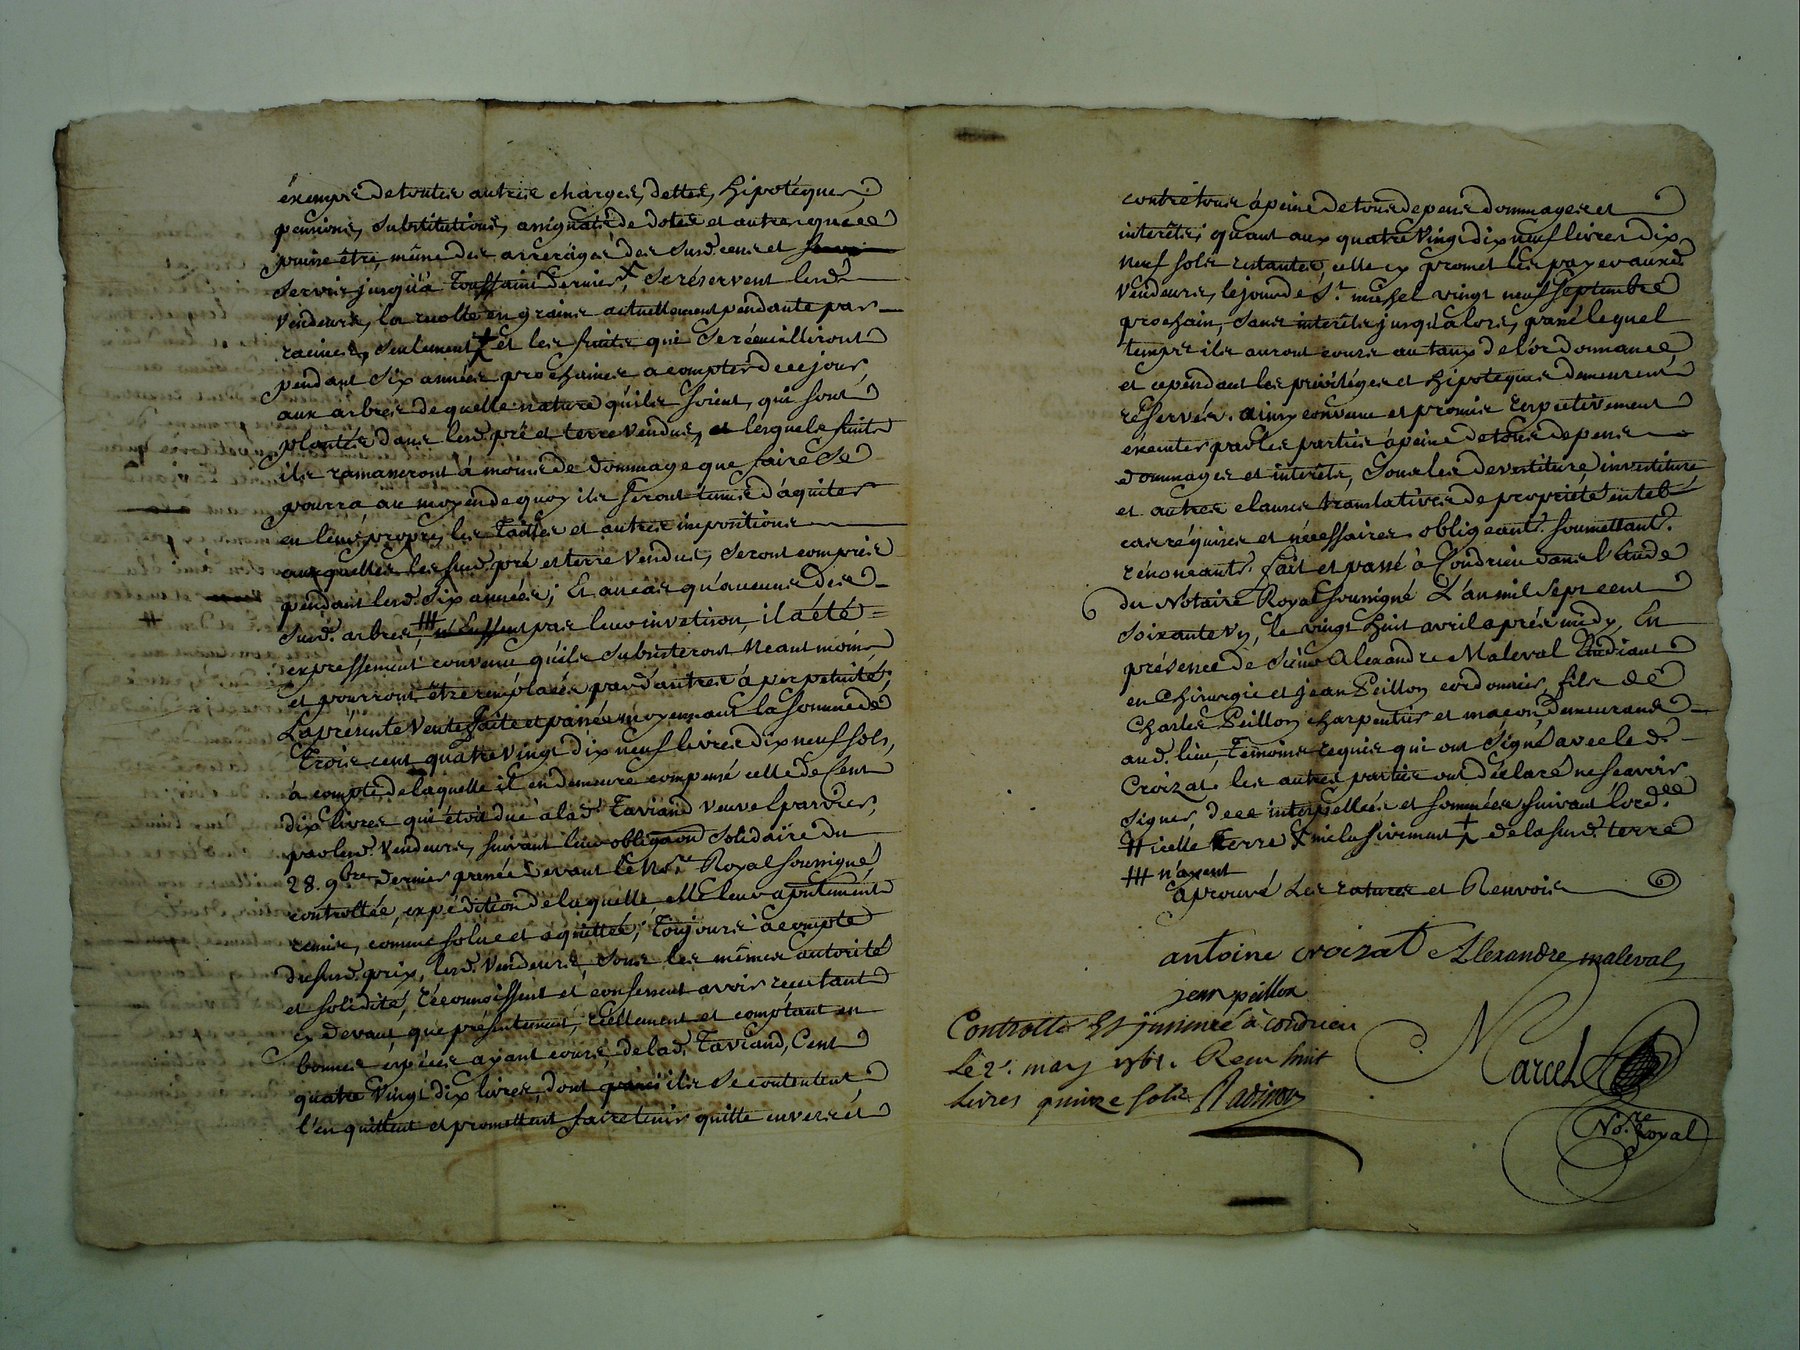 éxempte de toutes autres charges, dettes, hipotéques,
pensions, substitutions, assignats de dotes et autres que ce
puisse être, même des arrerages des susd. cens et
servis jusqu'à Toussaint dernier, se réservent lesd.
vendeurs, la recolte en grains actuellement pendante par
racines, seulement et les fruits qui se réceuilliront
pendant six années prochaines a compter de ce jour,
aux arbres de quelle nature qu'ils soient, qui sont
plantés dans lesd. pré et terre vendus, et lesquels fruits
ils ramasseront à moins de dommage que faire se
pourra au moyen de quoy ils seront tenus d'aquiter
en leur propre, les Tailles et autres impositions
auxquelles les susd. pré et terre vendus, seront compris
pendant lesd. six années; Et au cas qu'aucuns des
susd. arbres, # n'eussent pas leur invetison, il a été
expressément convenu qu'ils subsisteront neantmoins
et pourront être remplacés par d'autres à perpetuité;
La présente vente faite et passée moyennant la somme de
Trois cent quatre vingt dix neuf livres dix neuf sols,
a compte de laquelle il en demeure compensé celle de cent
dix livres qui étoit düe à lad. Taviand veuve
par lesd. vendeurs, suivant leur obligaon solidaire du
28. 9bre dernier passée devant le Nore Royal soussigné,
controllée, expédition de laquelle elle leur a présentement
remise, comme solue et aquittée; Toujours à compte
du susd. prix, lesd. vendeurs, sous les mêmes autorité
et solidité, réconnoissent et confessent avoir reçu tant
cy devant que présentement, réellement et comptant en
bonnes éspéces ayant cours, de lad. Taviand, Cent
quatre vingt dix livres, dont ils se contentent
l'en quittent et promettent faire tenir quitte envers et
contre tous à peine de tous depens dommages et
interêts; quant aux quatre vingt dix neuf livres dix
neuf sols restantes, celle cy promet les payer auxd.
vendeurs, le jour de St. michel vingt neuf septembre
prochain, sans interêts jusqu'alors, passé lequel
temps ils auront cours au taux de l'ordonnance,
et cependant les priviléges et hipoteques demeurent
reservés. ainsy convenu et promis respectivement
éxécuter par les parties à peine de tous depens
dommages et interêts, sous les devestiture, investiture
et autres clauses translatives de propriété en tel
cas réquises et nécessaires. obligeants. soumettants.
rénonceants. fait et passé à Condrieu dans l'Etude
du Notaire Royal soussigné L'an mil sept cent
soixante un, le vingt huit avril après midy, En
présence de sieur Alexandre Maleval Etudiant
en Chirurgie et jean Peillon cordonnier, fils de
Charles Peillon charpentier et maçon, demeurants
aud. lieu, Témoins requis qui ont signé avec led.
Croizat. les autres parties ont déclaré ne sçavoir
signer, de ce interpellées et sommées suivant l'ord.ce
# icelle terre inclusivement + de la susd. terre
# n'ayent
aprouvé Les ratures et Renvois
antoine croizat Alexandre maleval
jean peillon
Controllé Et jnsinué à condrieu
Le 2. may 1761. Reçu huit
Livres quinze sols
Marcel
No.re Royal